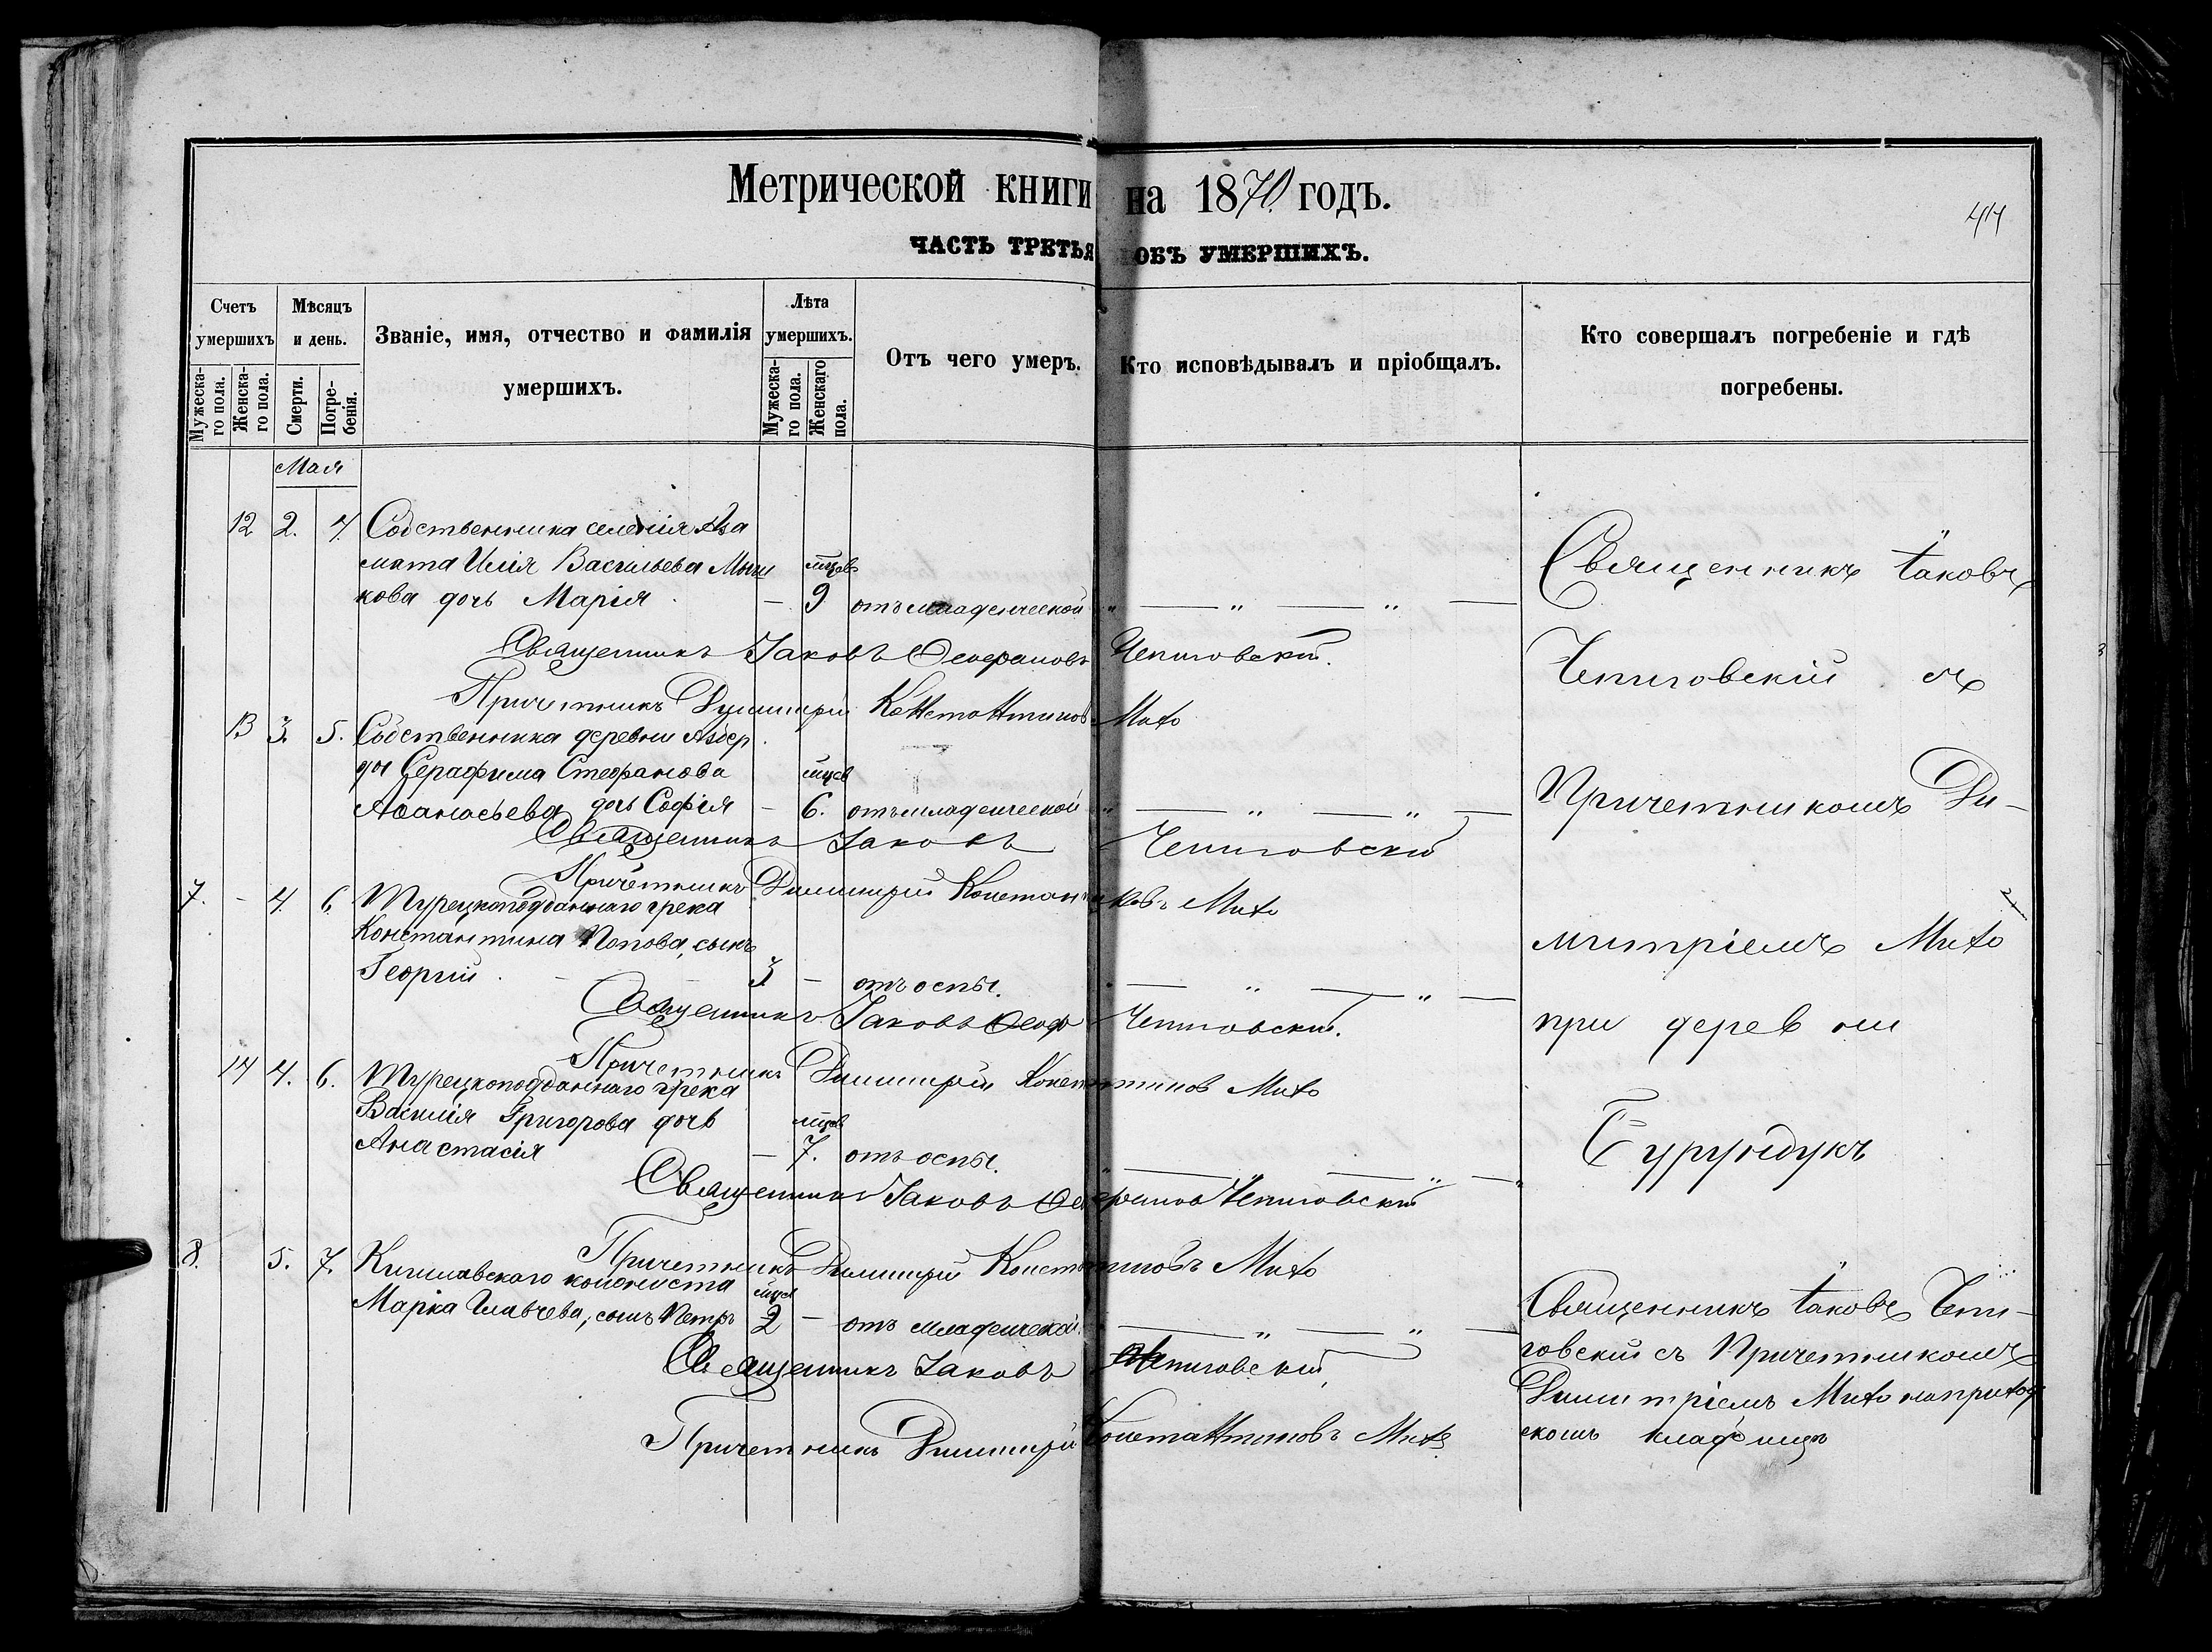 Метрической книги на 1870. годъ.
44
ЧАСТЬ ТРЕТЬЯ ОБЪ УМЕРШИХЪ.
Счетъ умершихъ
Мужеска-го пола.
Женска-го пола.
Мѣсяцъ и день.
Смерти.
Погре-бенія.
Званіе, имя, отчество и фамилія умершихъ.
Лѣта умершихъ.
Мужеска-го пола.
Женскаго пола.
Отъ чего умеръ.
Кто исповѣдывалъ и пріобщалъ.
Кто совершалъ погребеніе и гдѣ погребены.
Мая
12 2. 4. Собственника селенія Аза
мата Илія Васильева мцев
кова дочь Марія — 9 отъ младенческой
Священникъ Іаковъ Чепиговскій.
Причетникъ Димитрій Константиновъ Михо
13 3. 5. Собственника деревни Азбер
ди Серафима Стефанова мцев
Аѳанасьева дочь Софія — 6. отъ младенческой
Священникъ Іаковъ Чепиговскій
Причетникъ Димитрій Константиновъ Михо
7. - 4. 6. Турецкоподданнаго грека
Константина Попова, сынъ
Георгій 3 — отъ оспы.
Священникъ Іаковъ Ѳеоф Чепиговскій.
Причетникъ Димитрій Константинов Михо
14 4. 6. Турецкоподданнаго грека
Василія Григорова дочь мцов
Анастасія — 7. отъ оспы.
Священникъ Іаковъ Чепиговскій
Причетникъ Димитрій Константиновъ Михо
8. 5. 7. Кишлавскаго колониста мцев
Марка Главчева, сынъ Петръ 2 — отъ младенческой
Священникъ Іаковъ Чепиговскій,
Причетникъ Димитрій Константиновъ Михо.
Священникъ Іаковъ
Чепиговскій съ
Причетникомъ Ди-
митріемъ Михо
при деревни
Бурундукъ
Священникъ Іаковъ Чепи-
говскій съ Причетникомъ
Димитріемъ Михо на приход
скомъ кладбищѣ